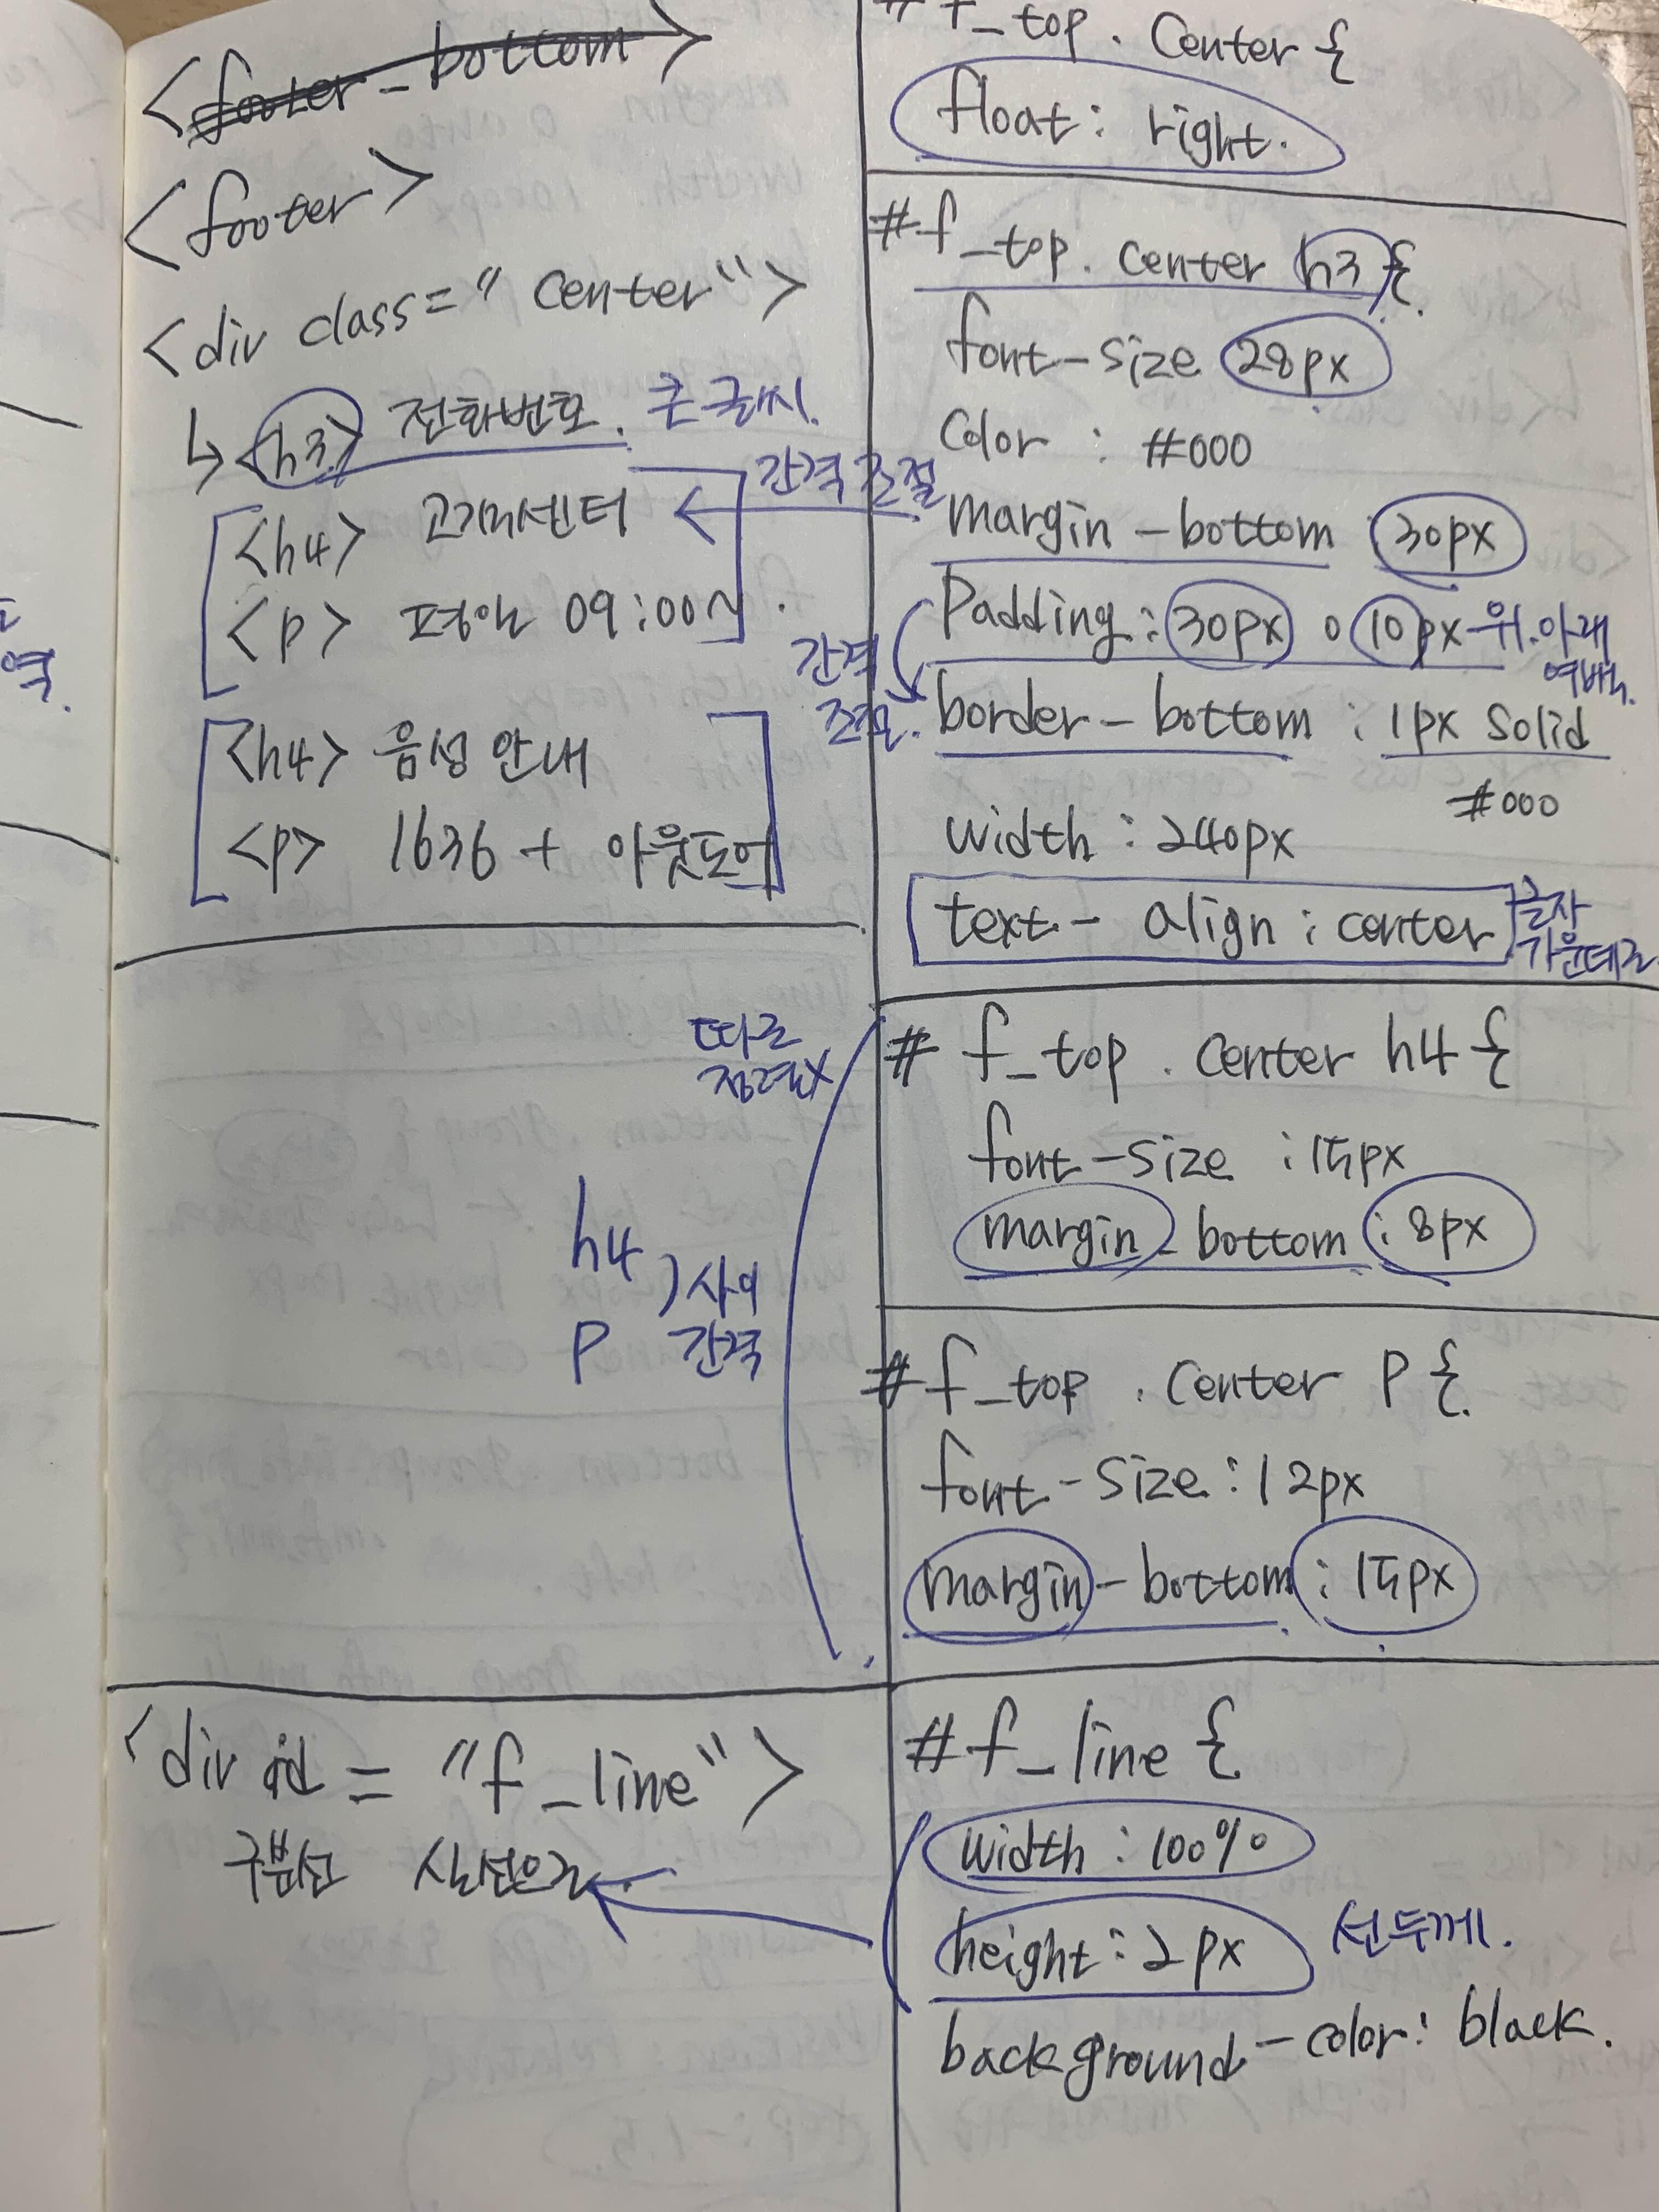 <footer_bottom>
<footer>
<div class="center">
↳ <h3> 전화번호. 큰 글씨.
<h4> 고객센터
<p> 평일 09:00~
<h4> 음성 안내
<p> 1636 + 아웃도어
따로
정렬X
h4
p
사이
간격
<div id="f_line">
구분선 실선으로.
#f_top .center {
float: right.
#f_top. center h3 {
font-size 28px
color : #000
간격 조절
margin-bottom 30px
padding: 30px 0 10px - 위.아래
여백.
간격
조절.
border-bottom : 1px solid
#000
width : 240px
text-align : center
글자
가운데로
# f_top .center h4 {
font-size : 15px
margin-bottom : 8px
#f_top .center p {
font-size : 12px
margin-bottom : 15px
#f_line {
width : 100%
height : 2px 선두께.
background-color: black.